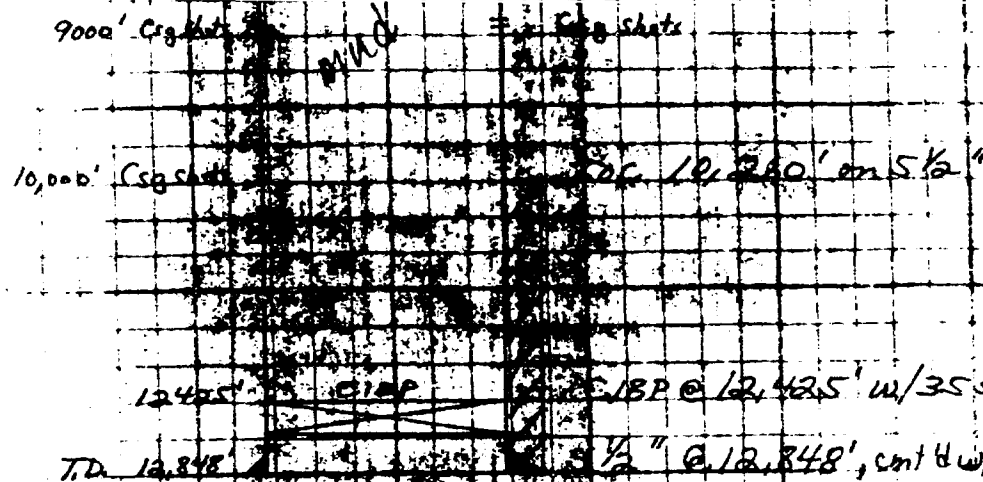 9000' Csg shots
Csg shots
mud
10,000' Csg shots
TOC 10,260' on 5 1/2"
12425' CIBP
CIBP @ 12,425' w/35 s
T.D. 12,848'
1/2" @ 12,848', cmt'd w/